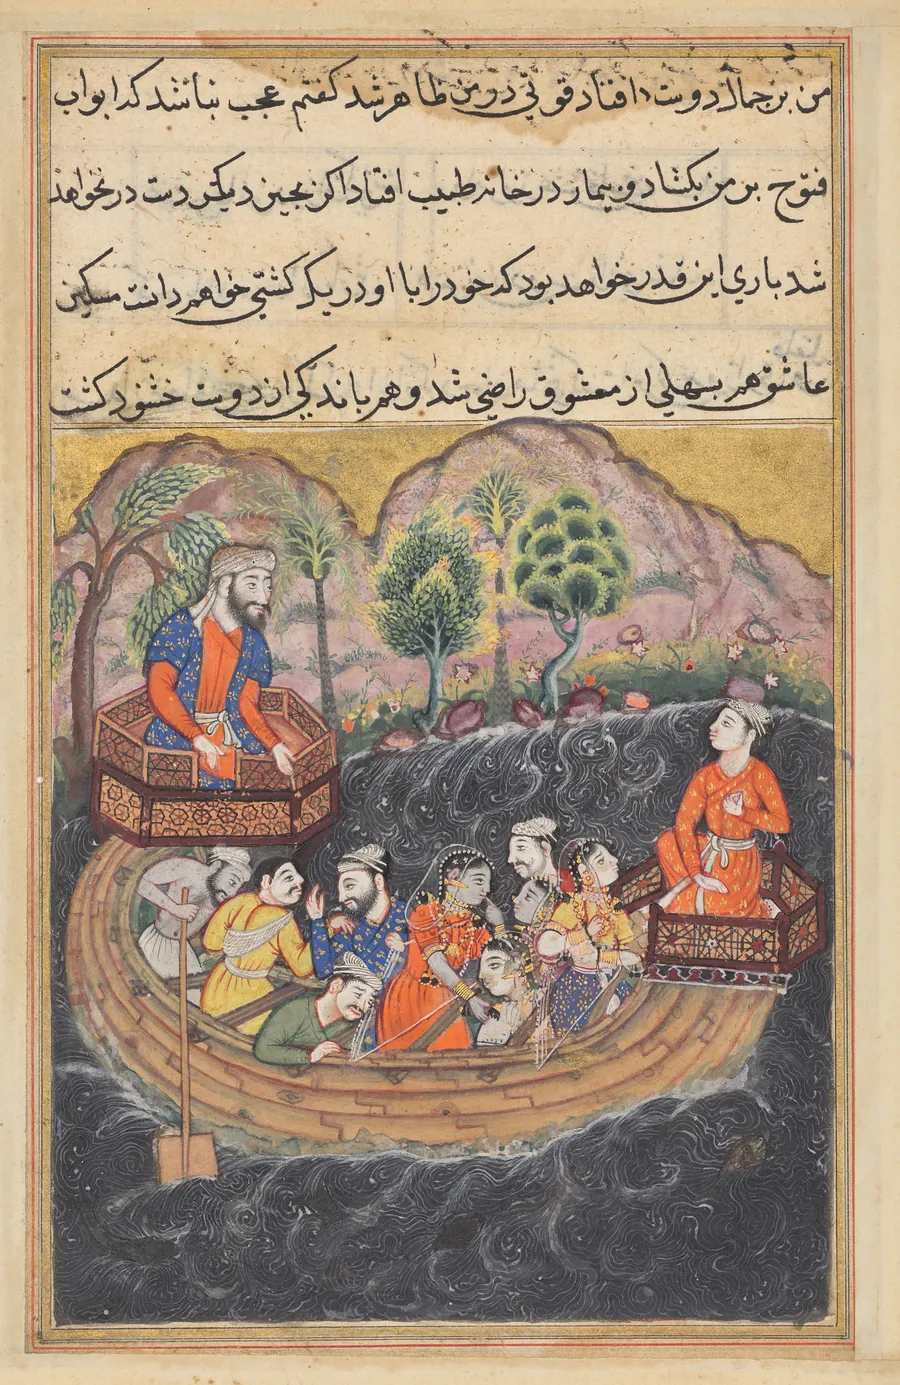 من بر جمال دوست افتاد قوتی در من ظاهر شد گفتم عجب نباشد که ابواب
فتوح بر من بکشاد و بیمار در خانه طبیب افتاد اکر بچیز دیکر دست در نخواهد
شد باري این قدر خواهد بود که خود را با او در یک کشتي خواهم دانست مسکین
عاشق هم بسهلي از معشوق راضي شد و هم باندکي از دوست خشنود کشت